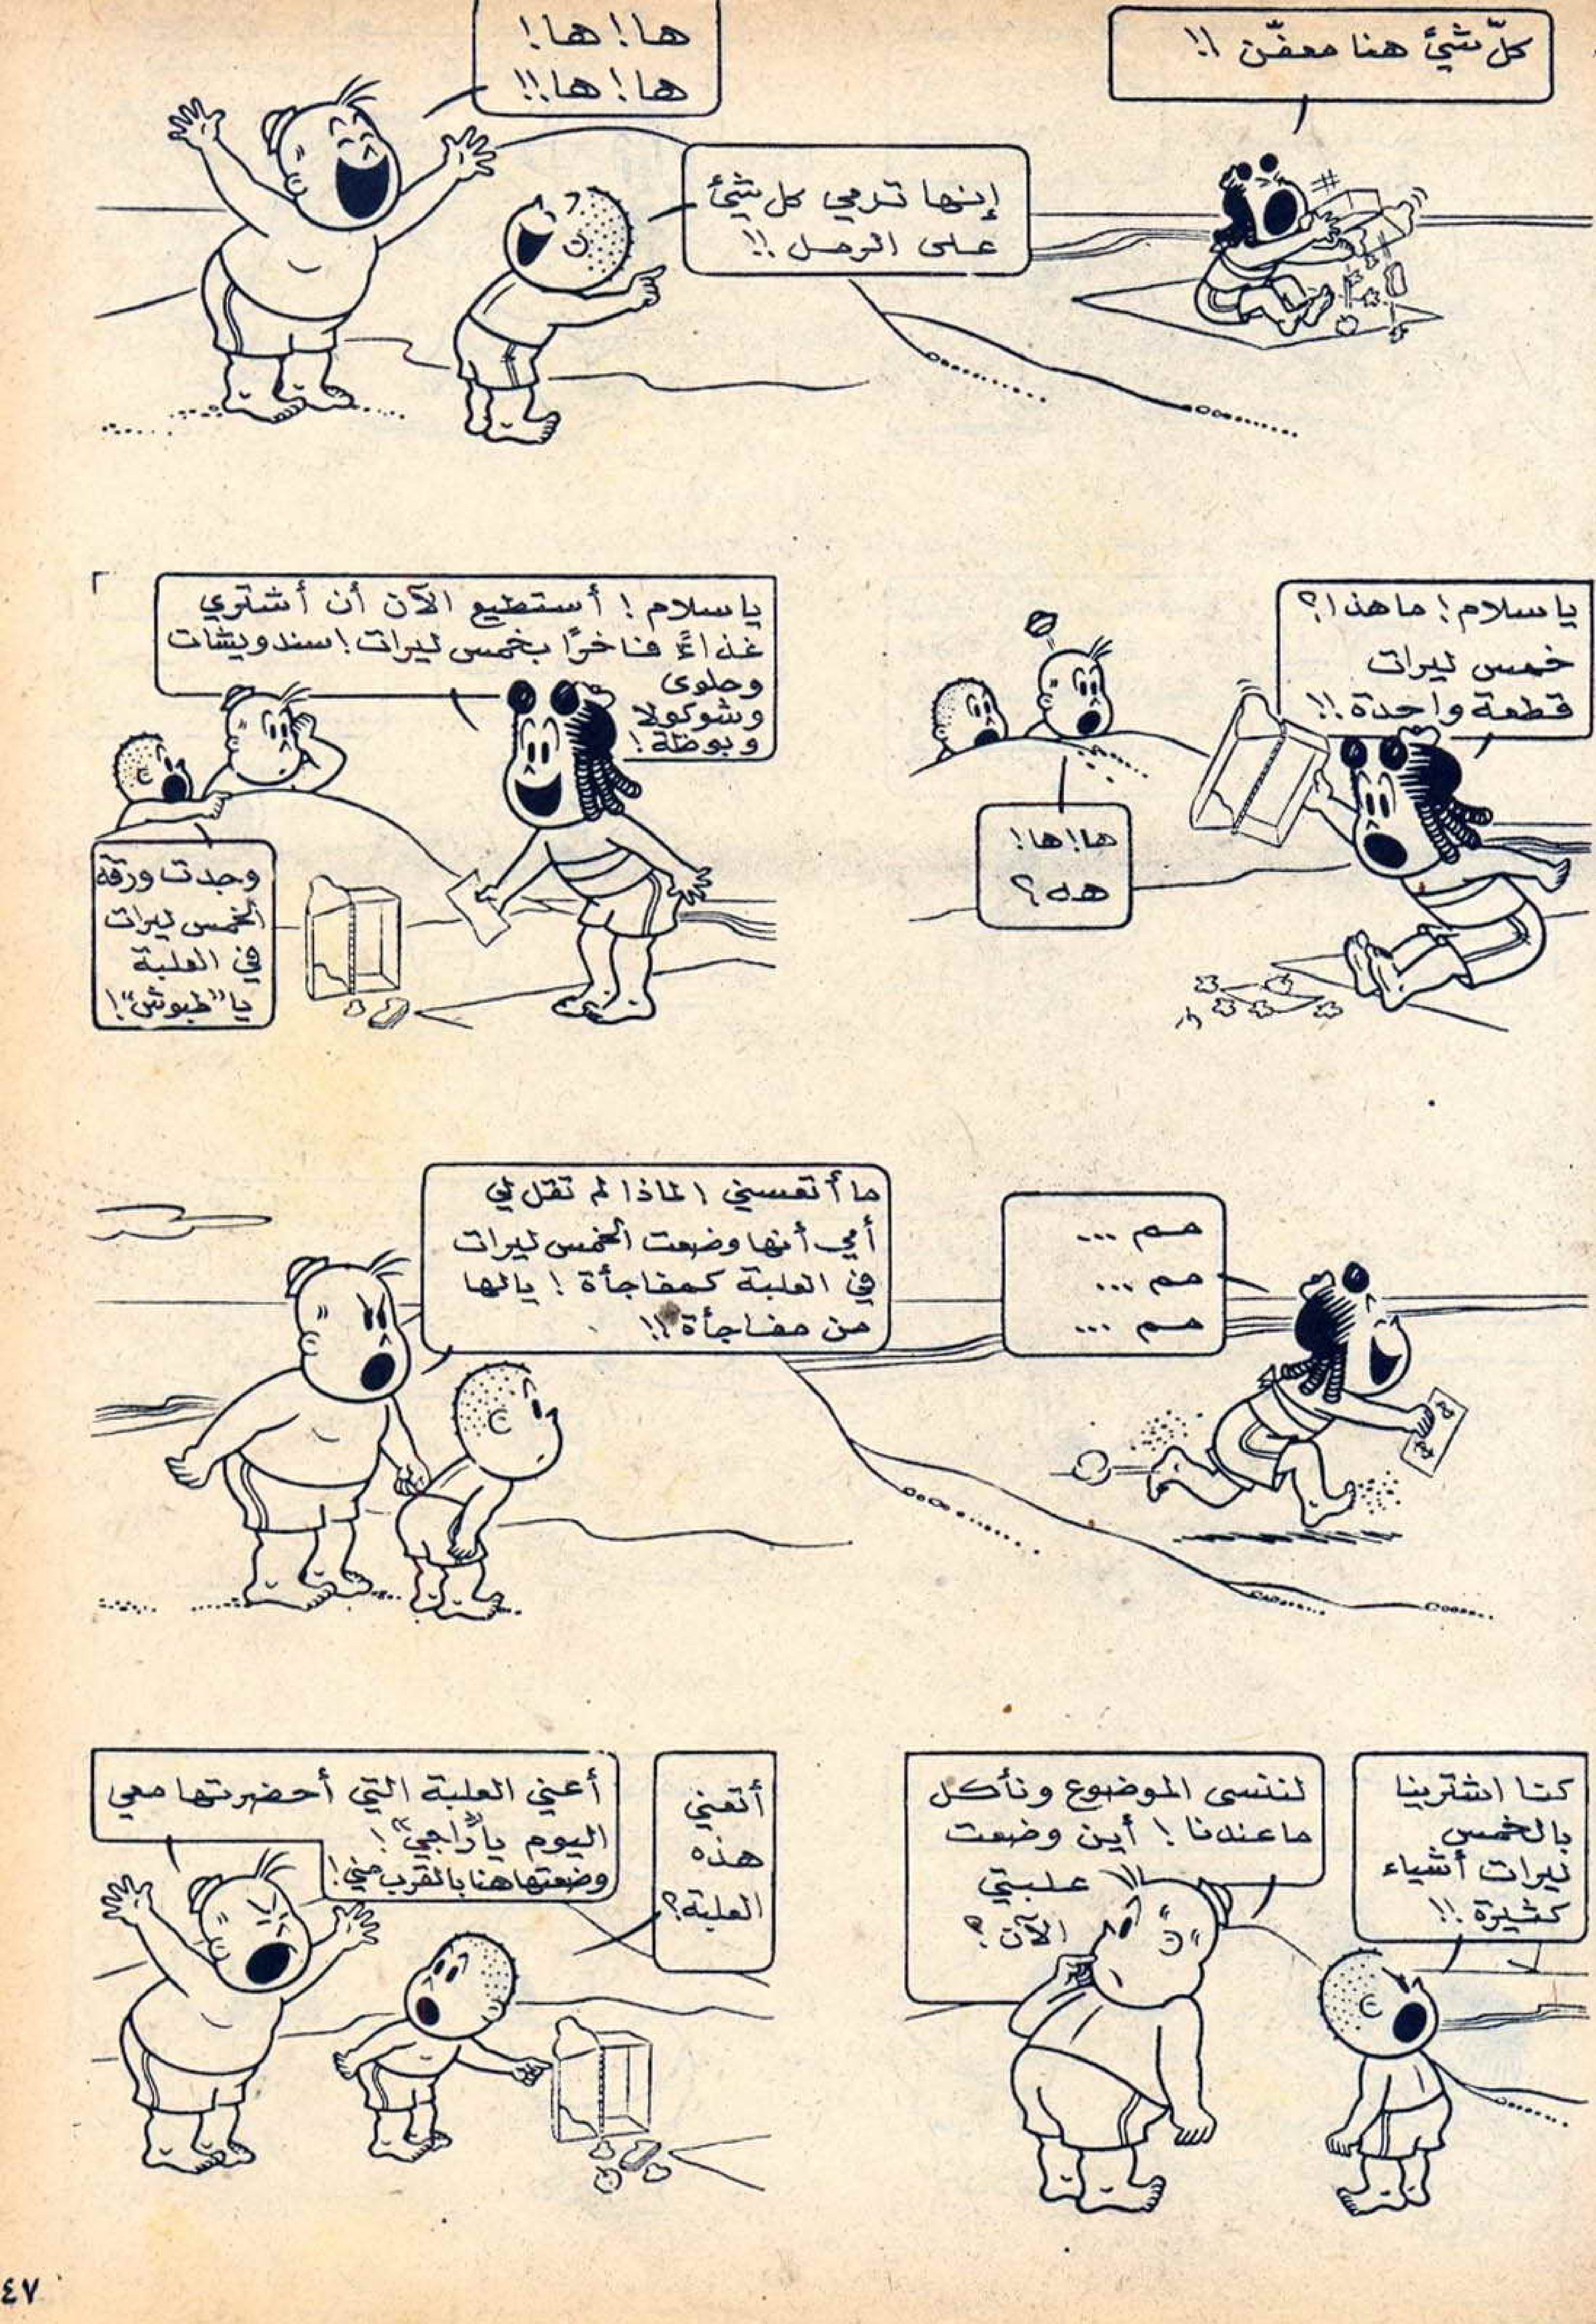 كلّ شيئ هنا معفّن !!
ها! ها!
ها! ها!!
إنها ترمي كل شيئ
على الرمل !!
ياسلام! ما هذا؟
خمس ليرات
قطعة واحدة!!
ها! ها!
هه؟
ياسلام! أستطيع الآن أن أشتري
غذاءً فاخرًا بخمس ليرات! سندويشات
وحلوى
وشوكولا
وبوظة!
وجدت ورقة
الخمس ليرات
في العلبة
يا "طبوش"!
مم ...
مم ...
مم ...
ما أتعسني! لماذا لم تقل لي
أمي أنها وضعت الخمس ليرات
في العلبة كمفاجأة! يالها
من مفاجأة!!
كنا اشترينا
بالخمس
ليرات أشياء
كثيرة!!
لننسى الموضوع ونأكل
ما عندنا! أين وضعت
علبتي
الآن؟
أتعني
هذه
العلبة؟
أعني العلبة التي أحضرتها معي
اليوم يا "زاجي"!
وضعتها هنا بالقرب مني!
٤٧